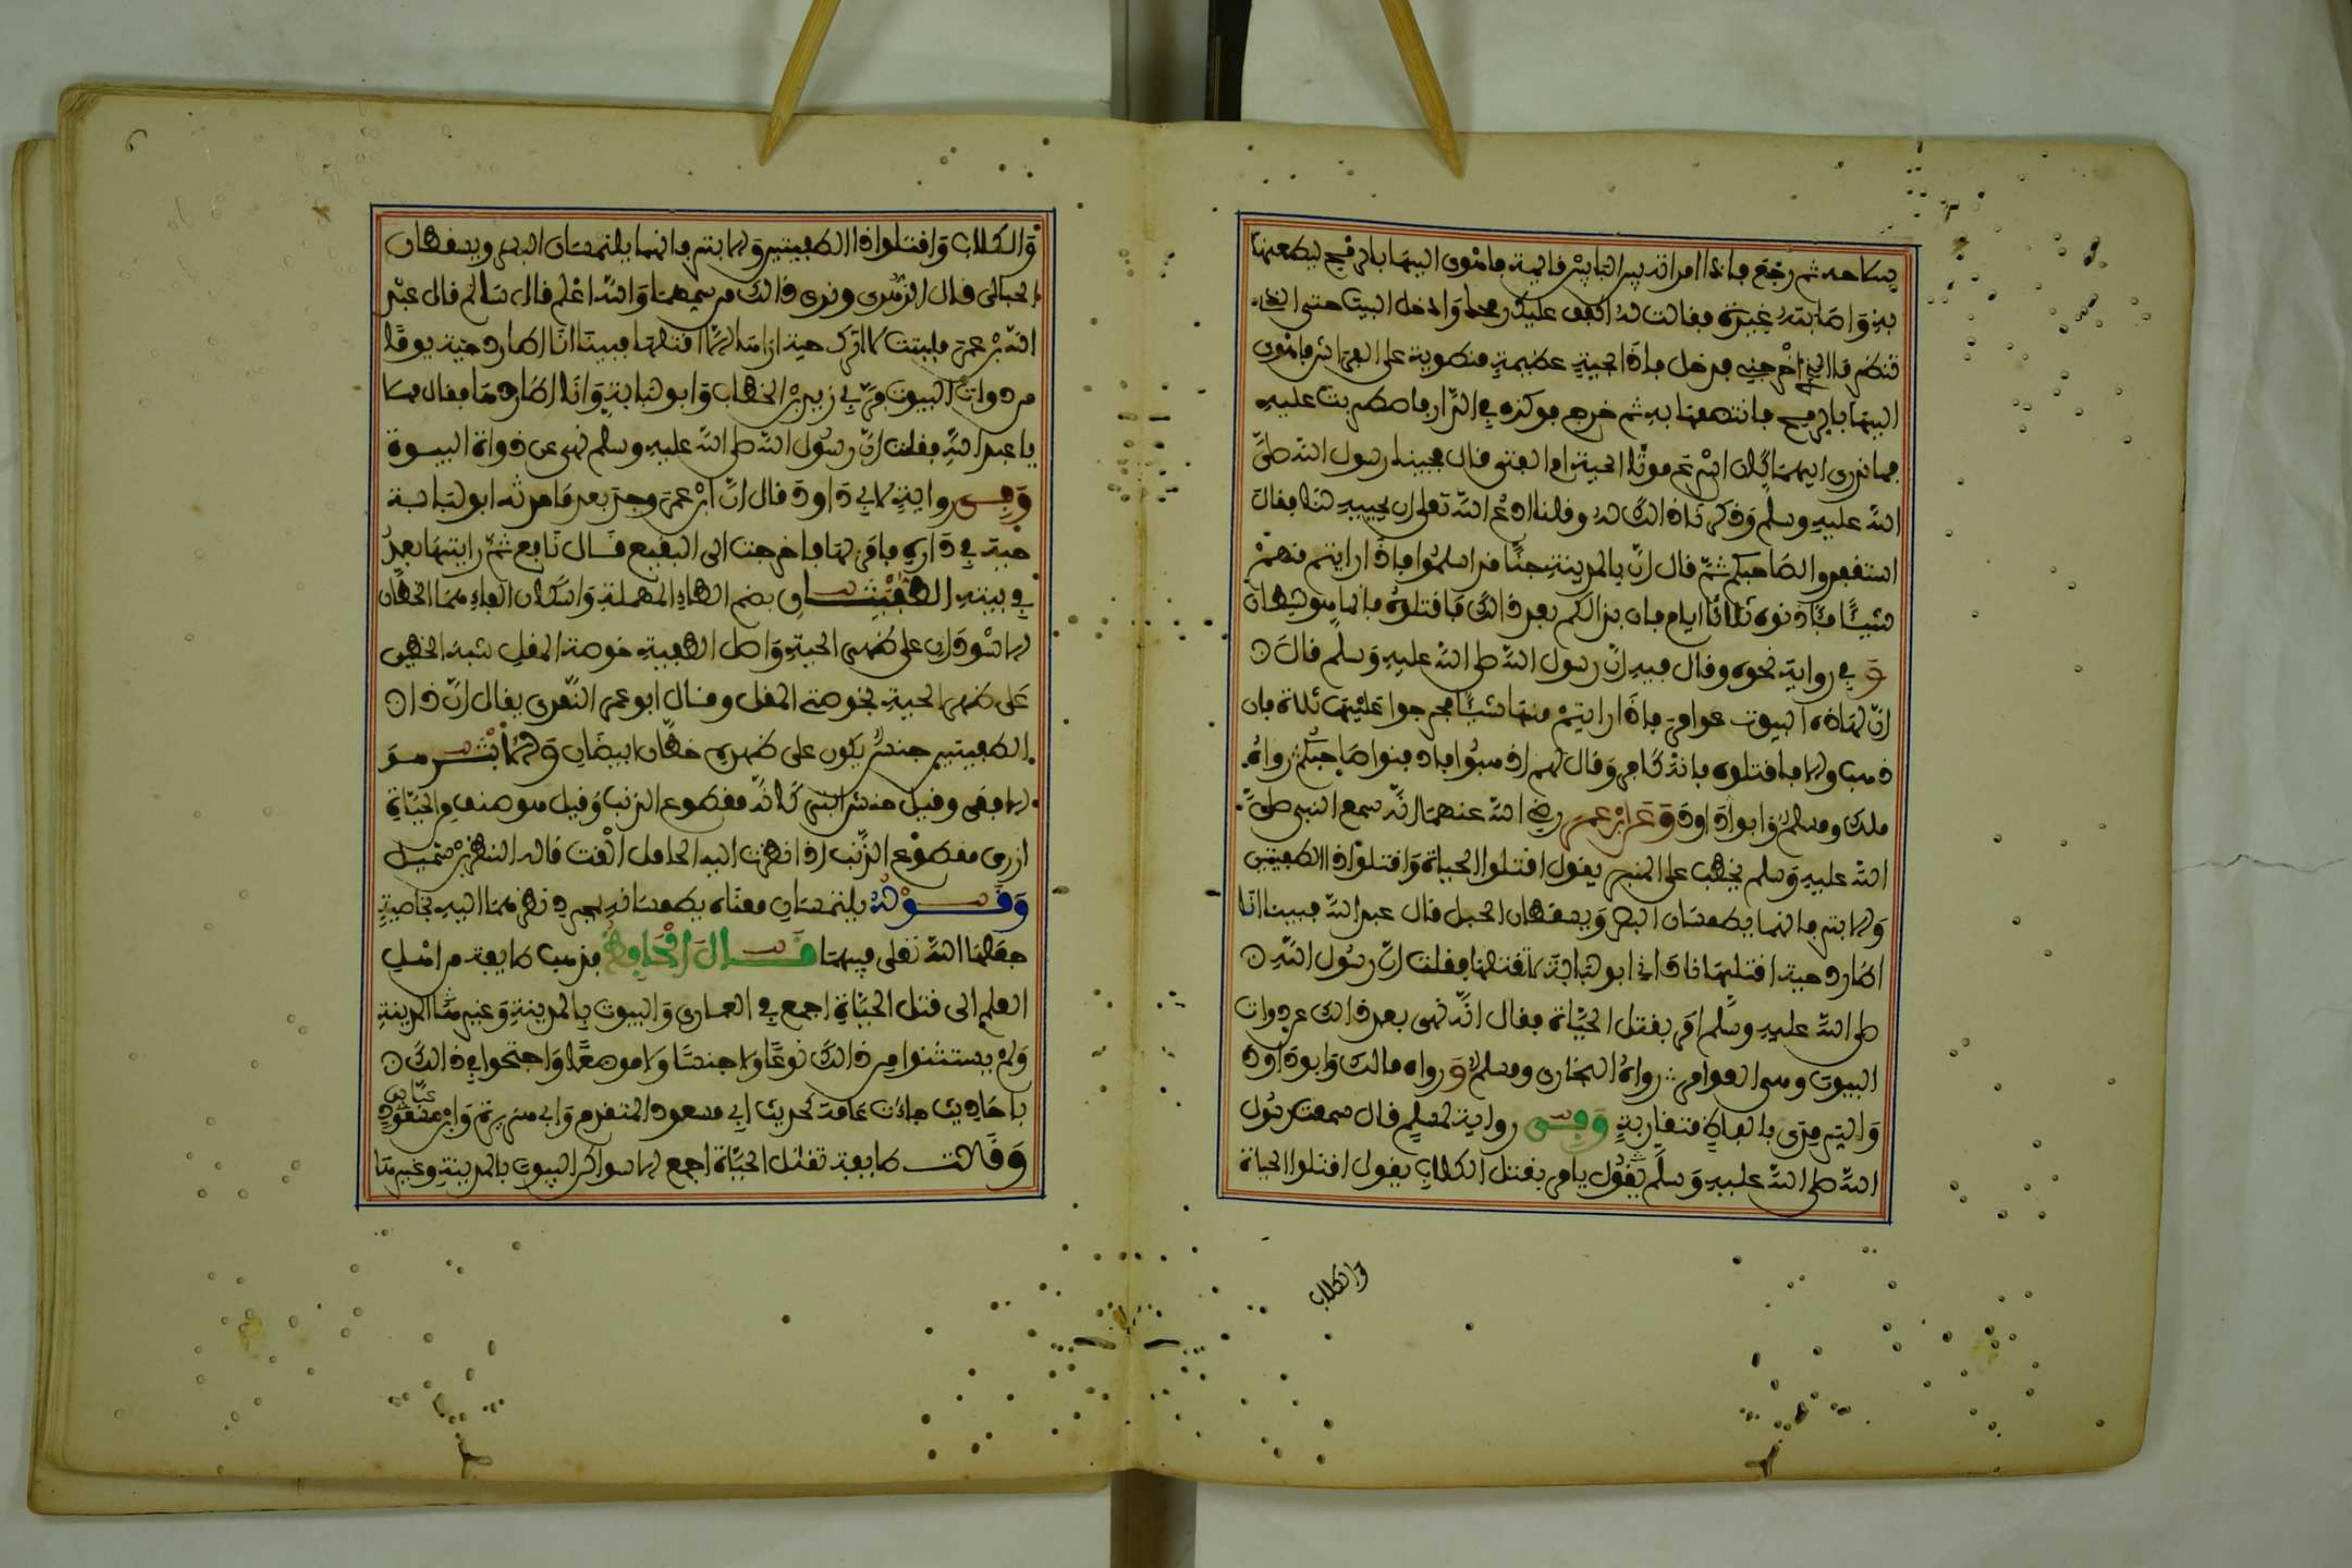 سلاحه ثم رجع فاذا امراته بين البابين قايمة فاهوى اليها بالرمح ليطعنها
به واصابته غيرة فقالت له اكفف عليك رمحك وادخل البيت حتى
تنظر ما الذي اخرجني فدخل فاذا بحية عظيمة منطوية على الفراش فاهوى
اليها بالرمح فانتظمها به ثم خرج فركزه في الدار فاضطربت عليه
فما ندري ايهما كان اسرع موتا الحية ام الفتى قال فجينا رسول الله صلى
الله عليه وسلم وذكرنا ذالك له وقلنا ادع الله تعلى ان يحييه لنا فقال
استغفروا لصاحبكم ثم قال ان بالمدينة جنا قد اسلموا فاذا رايتم منهم
شيئا فئاذنوه ثلاثة ايام فان بدا لكم بعد ذالك فاقتلوه فانما هو شيطان
وفي رواية نحوه وقال فيه ان رسول الله صلى الله عليه وسلم قال
ان لهاذه البيوت عوامر فاذا رايتم منها شيئا فحرجوا عليها ثلاثة فان
ذهب والا فاقتلوه فانه كافر وقال لهم اذهبوا فادفنوا صاحبكم رواه
ملك ومسلم وابو داود وعن ابن عمر رضي الله عنهما انه سمع النبي صلى
الله عليه وسلم يخطب على المنبر يقول اقتلوا الحياة واقتلوا ذا الطفيتين
والابتر فانهما يطمسان البصر ويسقطان الحبل قال عبد الله فبينا انا
اطارد حية اقتلها ناداني ابو لبابة لا تقتلها فقلت ان رسول الله
صلى الله عليه وسلم امر بقتل الحياة فقال انه نهى بعد ذالك عن دوات
البيوت وهي العوامر رواه البخاري ومسلم ورواه مالك وابو داود
والترمذي بالفاظ متقاربة وفي رواية لمسلم قال سمعت رسول
الله صلى الله عليه وسلم يقول يامر بقتل الكلاب يقول اقتلوا الحياة
والكلاب
والكلاب واقتلوا ذا الطفيتين والابتر فانهما يلتمسان البصر ويسقطان
الحبالى قال الزهري ونرى ذالك من سميهما والله اعلم قال سالم قال عبد
الله بن عمر فلبثت لا اترك حية اراها الا قتلتها فبينا انا اطارد حية يوما
من دوات البيوت مر بي زيد بن الخطاب وابو لبابة وانا اطاردها فقال مهلا
يا عبد الله فقلت ان رسول الله صلى الله عليه وسلم نهى عن ذوات البيوت
وفي رواية لابي داود قال ان ابن عمر وجد بعد ما حدثه ابو لبابة
حية في داره فامر بها فاخرجت الى البقيع قال نافع ثم رايتها بعد
في بيته الطفيتان بضم الطاء المهملة واسكان الفاء هما الخطان
الاسودان على ظهر الحية واصل الطفية خوصة المقل شبه الخطين
على ظهر الحية بخوصتي المقل وقال ابو عمر النمري يقال ان ذا
الطفيتين جنس يكون على ظهره خطان ابيضان والابتر هو
الافعى وقيل جنس ابتر كانه مقطوع الذنب وقيل هو صنف من الحياة
ازرق مقطوع الذنب اذا نظرت اليه الحامل القت قاله النضر بن شميل
وقوله يلتمسان معناه يطمسانه بمجرد نظرهما اليه بخاصية
جعلها الله تعلى فيهما قال الحافظ فذهب طايفة من اهل
العلم الى قتل الحياة اجمع في الصحاري والبيوت بالمدينة وغير المدينة
ولم يستثنوا من ذالك نوعا ولا جنسا ولا موضعا واحتجوا في ذالك
باحاديث جاءت عامة كحديث ابن مسعود المتقدم وابي هريرة وابن عباس
وقالت طايفة تقتل الحياة اجمع الا سواكن البيوت بالمدينة وغيرها